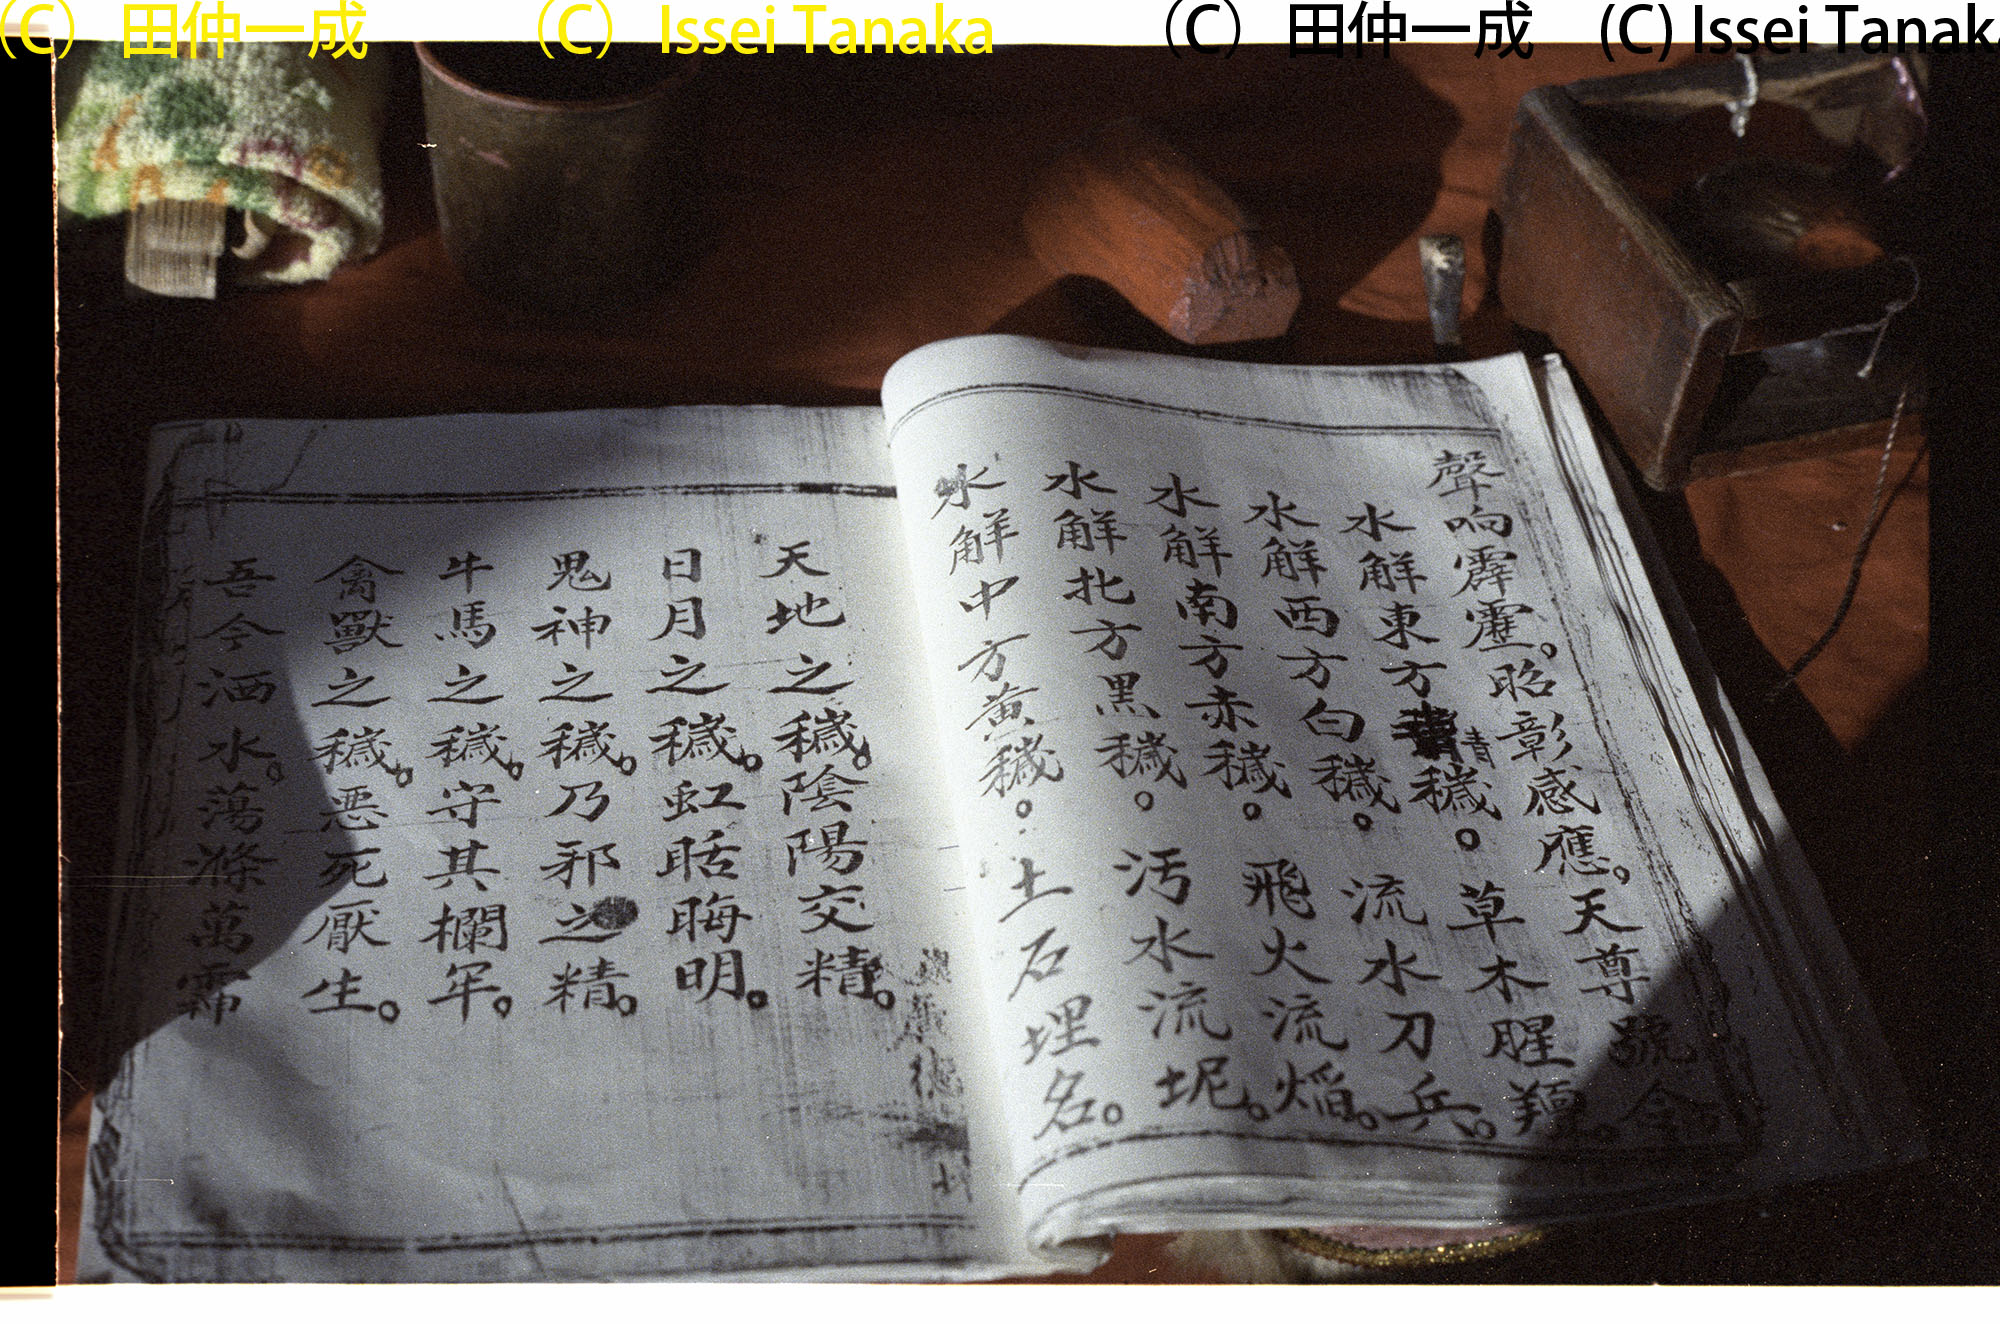 (C) 田仲一成 (C) Issei Tanaka (C) 田仲一成 (C) Issei Tanaka
聲响霹靂。昭彰感應。天尊號令
水解東方青穢。草木腥羶。
水解西方白穢。流水刀兵。
水解南方赤穢。飛火流焰。
水解北方黑穢。汚水流坭。
水解中方黃穢。土石埋名。
天地之穢。陰陽交精。
日月之穢。虹晤晦明。
鬼神之穢。乃邪之精。
牛馬之穢。守其欄牢。
禽獸之穢。悪死厭生。
吾今洒水。蕩滌萬霛